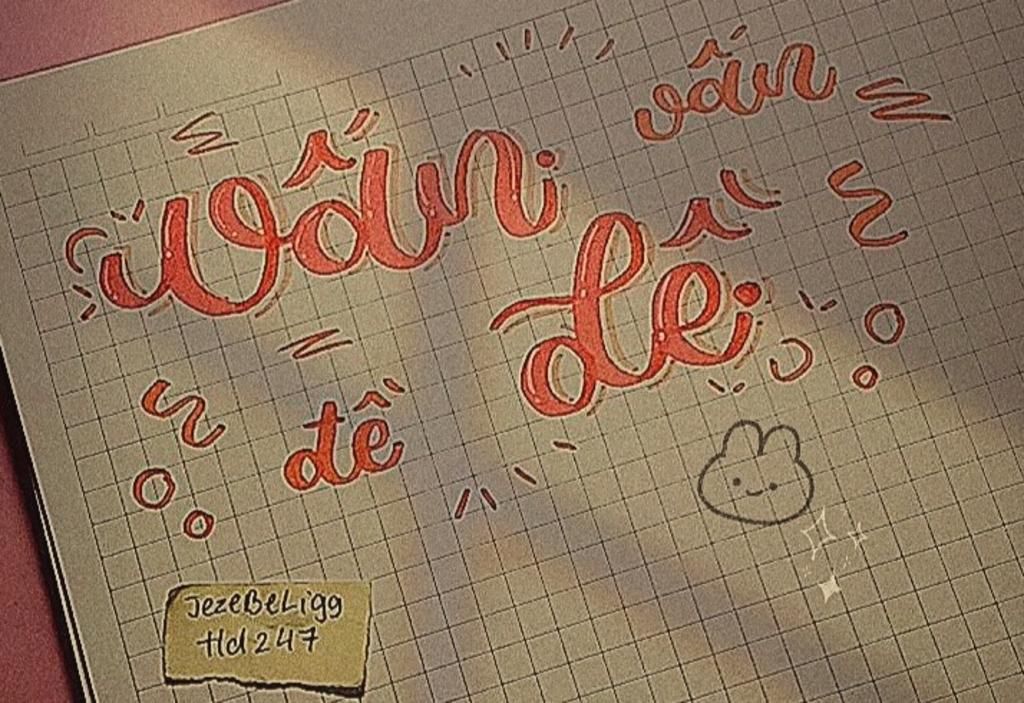 vấn
vấn
đề
đề
JezeBeLigg
Hd247